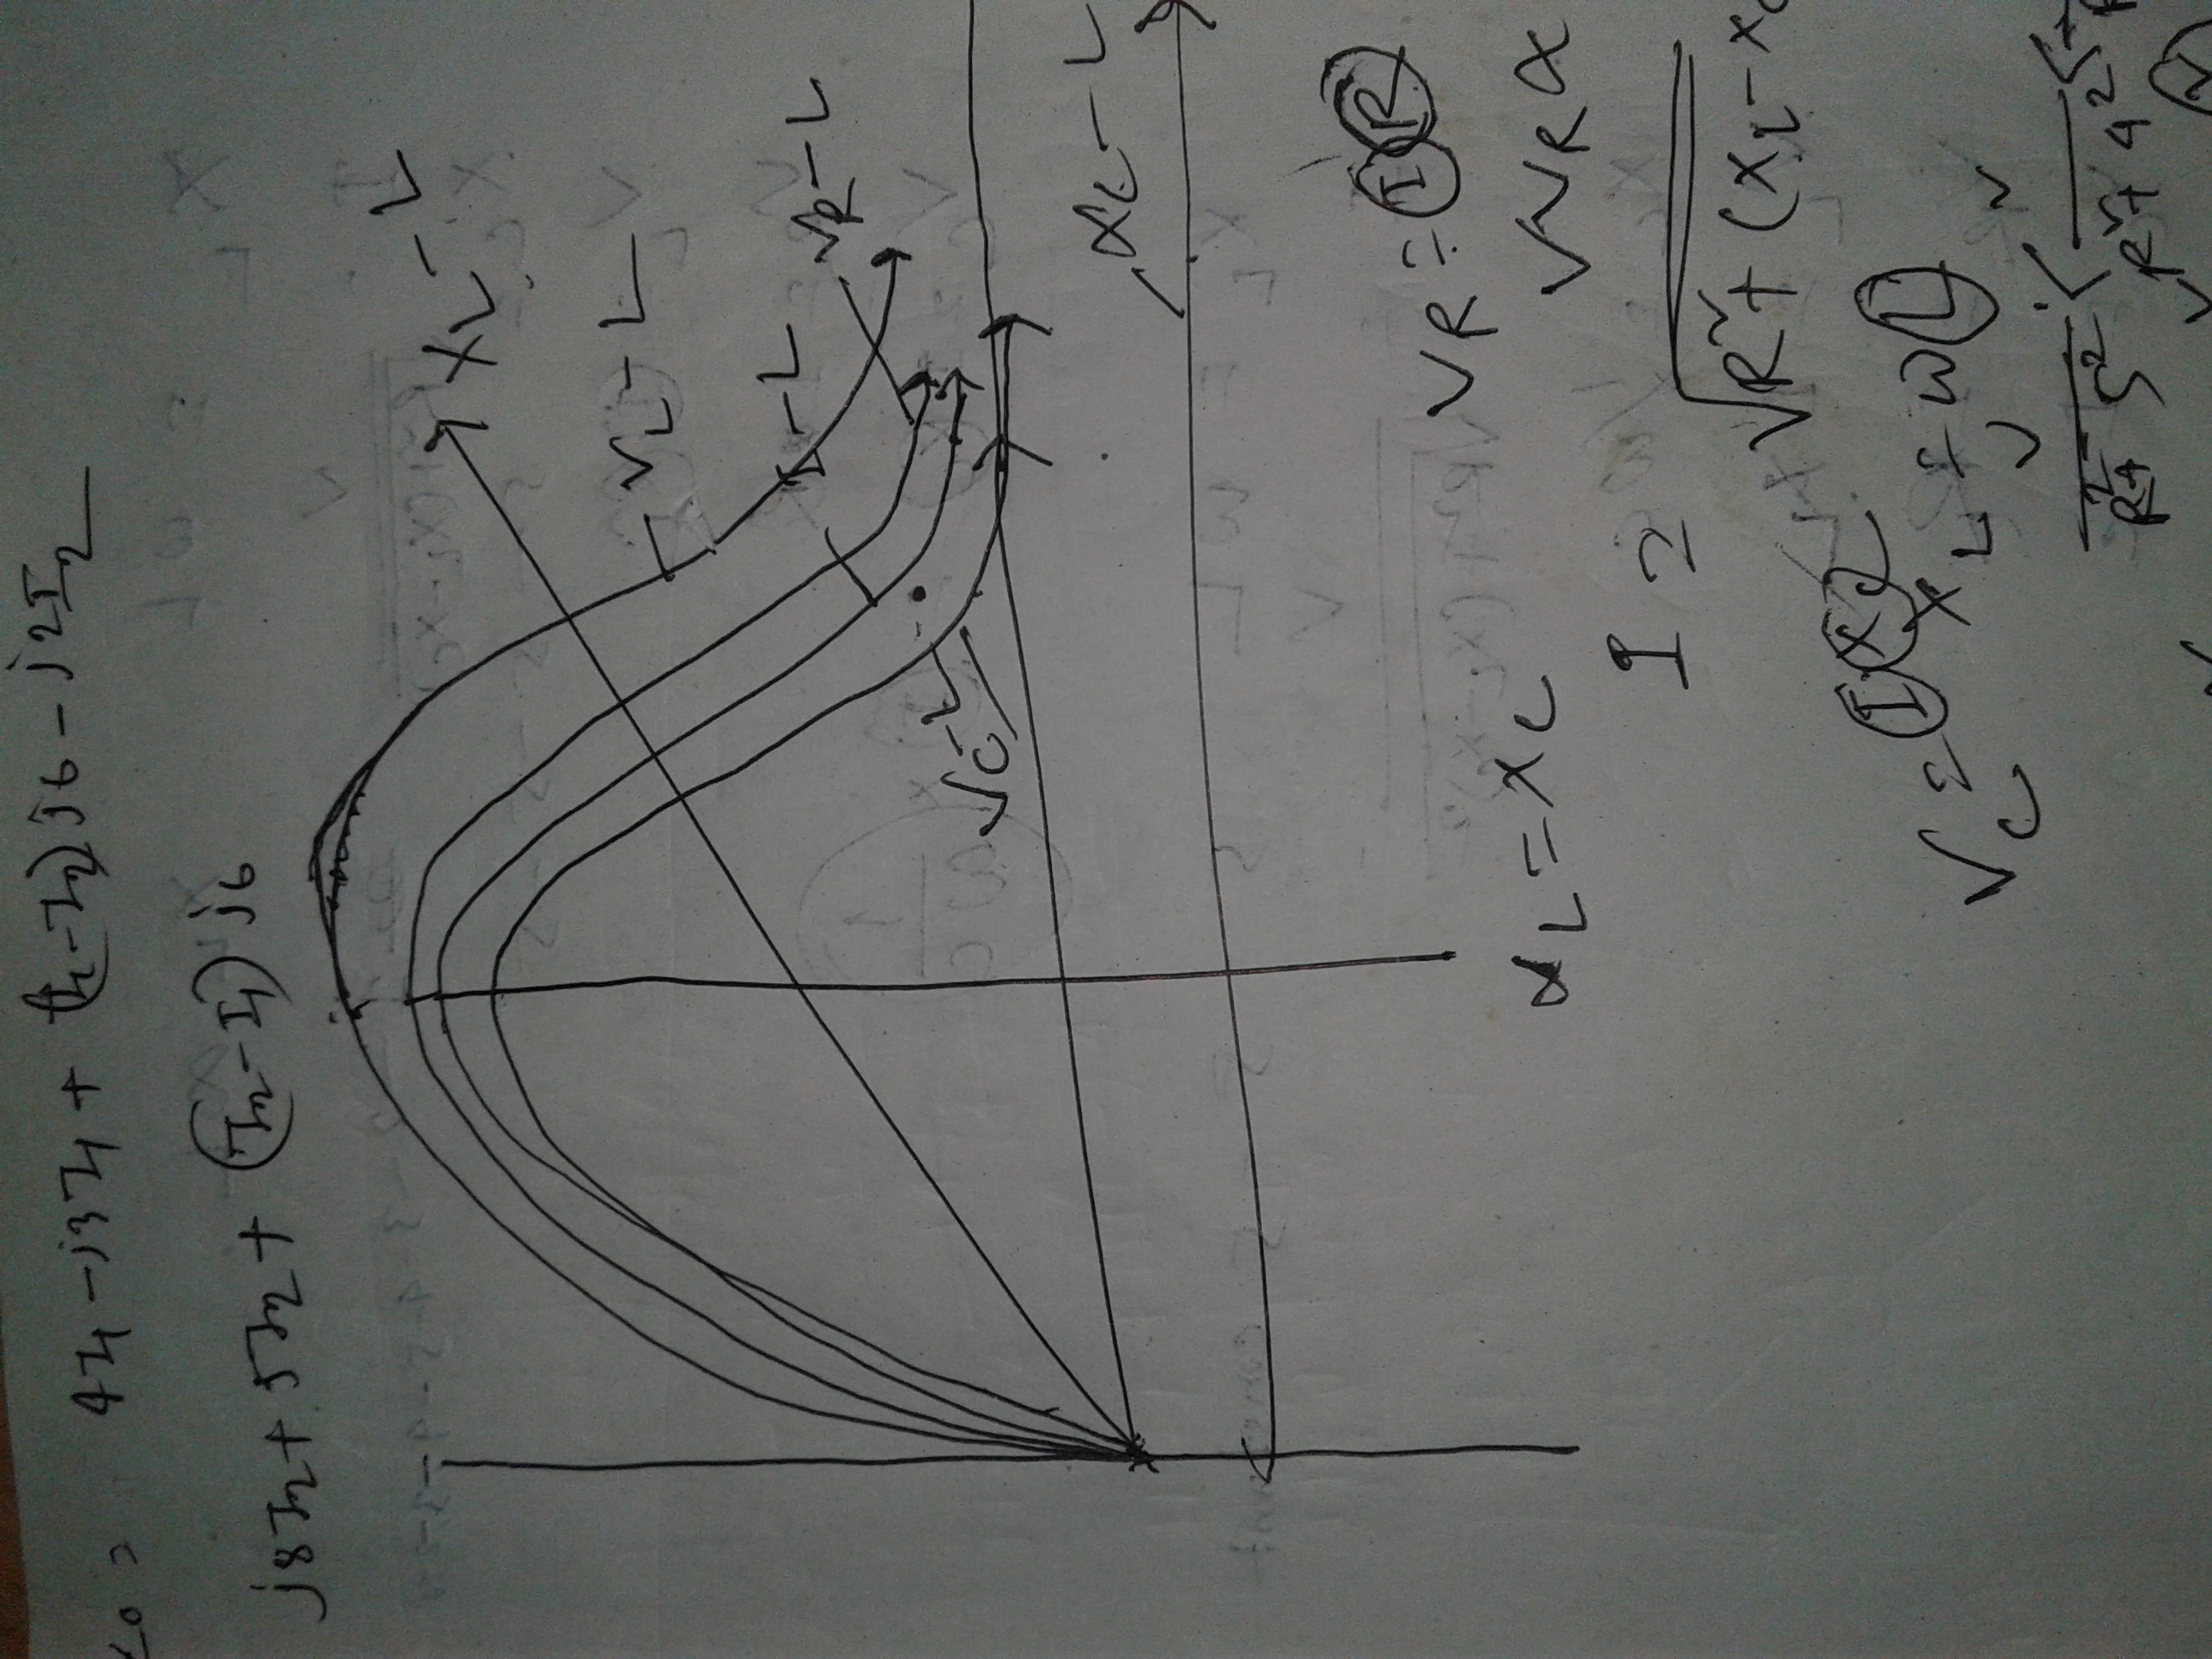 ∠0 = 4I1 - j3I1 + (I1-I2) j6 - j2I2
j8I2 + 5I2 + (I2-I1) j6
XL - L
VL - L
I - L
VR - L
VC - L
XC - L
VR = I R
XL = XC
VR ∝
I =
√R² + (XL - XC
VC = I XC
XL = ω L
V V
R² + 5² < R² + 4² <